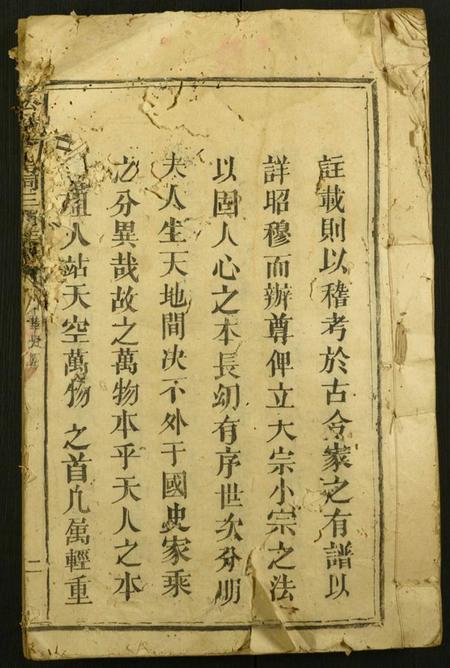 註載則以稽考於古今家之有譜以
詳昭穆而辦尊俾立大宗小宗之法
以固人心之本長幼有序世次分明
夫人生天地間决不外于國史家乘
之分異哉故之萬物本乎天人之本
祖人站天空萬物之首凡属輕重
二